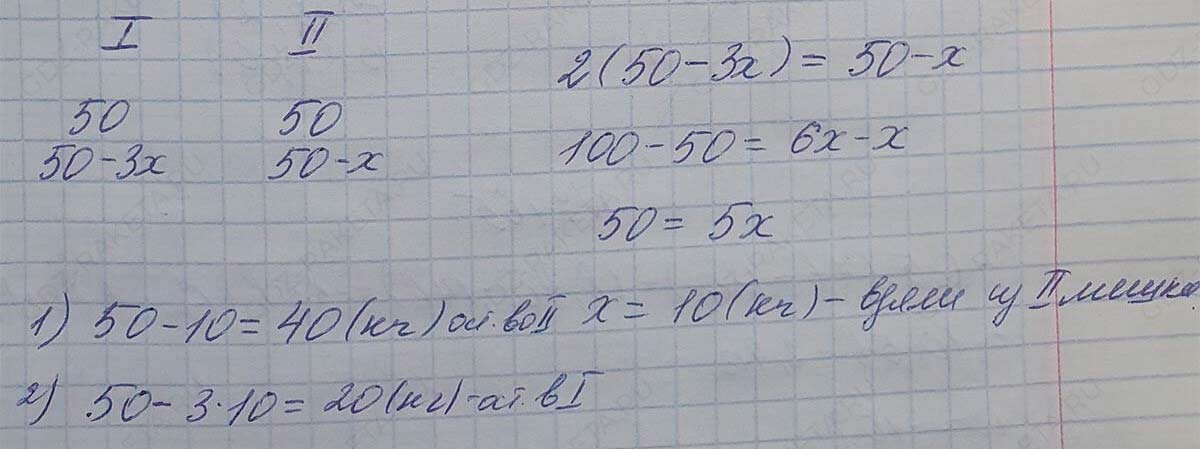 I II
50 50
50-3x 50-x
2(50-3x)=50-x
100-50=6x-x
50=5x
x=10(кг)-взяли из II мешка.
1) 50-10=40(кг)ост.воII
2) 50-3·10=20(кг)-ост.вI